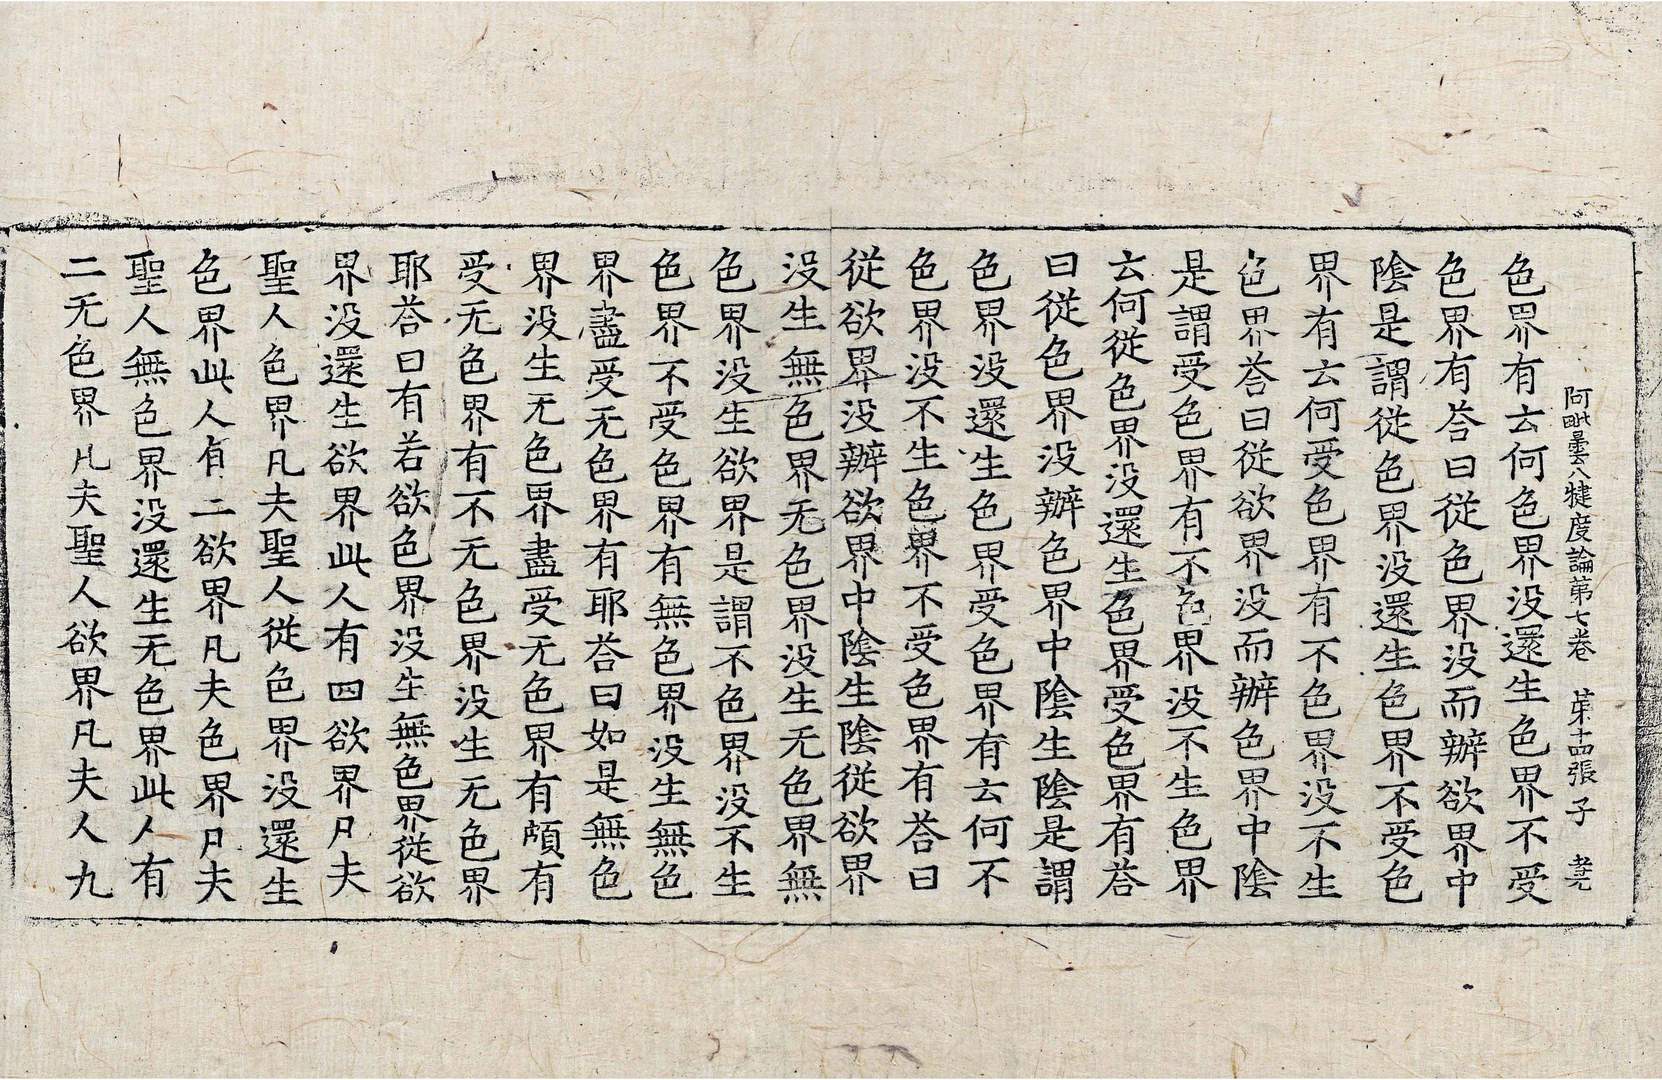 阿毗曇八犍度論第七卷　第十四張　子
色界有云何色界没還生色界不受
色界有荅曰從色界没而辦欲界中
陰是謂從色界没還生色界不受色
界有云何受色界有不色界没不生
色界荅曰從欲界没而辦色界中陰
是謂受色界有不色界没不生色界
云何從色界没還生色界受色界有荅
曰從色界没辦色界中陰生陰是謂
色界没還生色界受色界有云何不
色界没不生色界不受色界有荅曰
從欲界没辦欲界中陰生陰從欲界
没生無色界无色界没生无色界無
色界没生欲界是謂不色界没不生
色界不受色界有無色界没生無色
界盡受无色界有耶荅曰如是無色
界没生无色界盡受无色界有頗有
受无色界有不无色界没生无色界
耶荅曰有若欲色界没生無色界從欲
界没還生欲界此人有四欲界凡夫
聖人色界凡夫聖人從色界没還生
色界此人有二欲界凡夫色界凡夫
聖人無色界没還生无色界此人有
二无色界凡夫聖人欲界凡夫人九